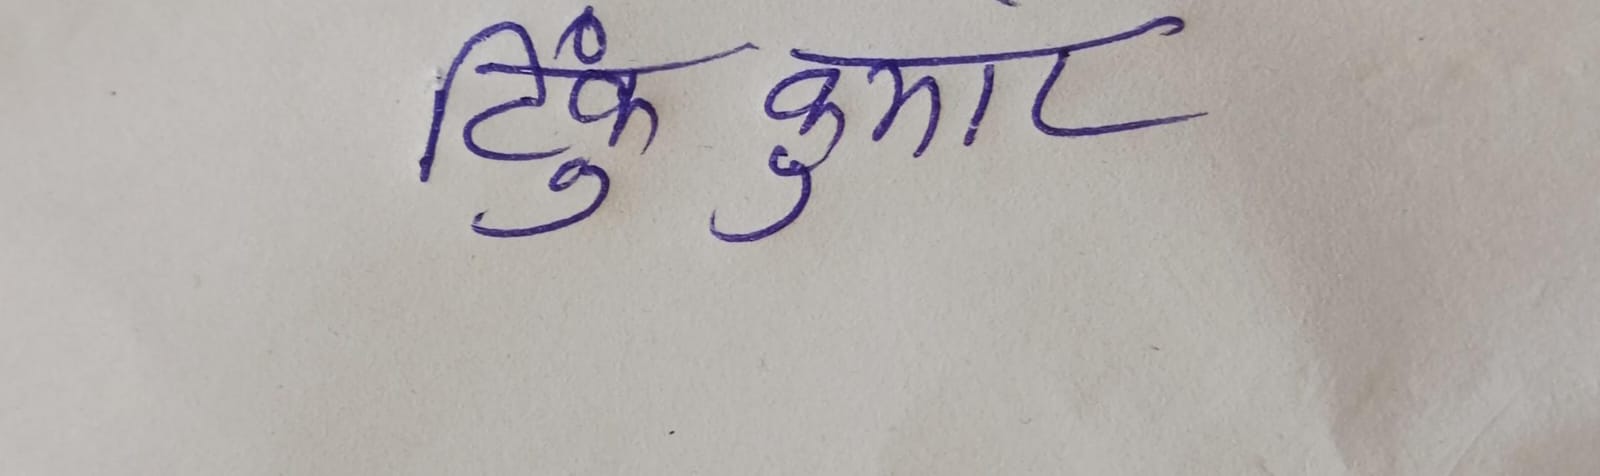 टिंकु कुमार